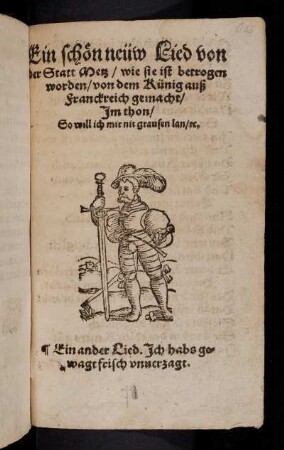 Ein schoͤn neüw Lied von
der Statt Metz / wie sie ist betrogen
worden / von dem Künig auß
Franckreich gemacht /
Im thon /
So will ich mir nit grausen lan / ꝛc.
¶ Ein ander Lied. Ich habs ge-
wagt frisch vnuerzagt.